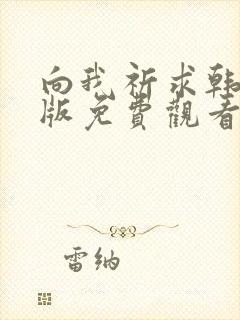 向我祈求韩
版免費觀看
雷纳